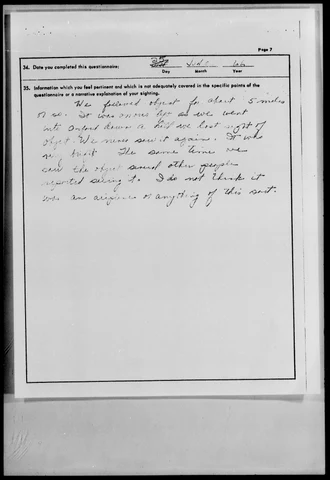 Page 7
34. Date you completed this questionnaire: June 66
Day Month Year
35. Information which you feel pertinent and which is not adequately covered in the specific points of the
questionnaire or a narrative explanation of your sighting.
We followed object for about 5 miles
or so. It was as we went
into Oxford down a we lost sight of
object. We never saw it again. It was
very bright. The same time we
saw the object several other people
reported seeing it. I do not think it
was an airplane or anything of this sort.